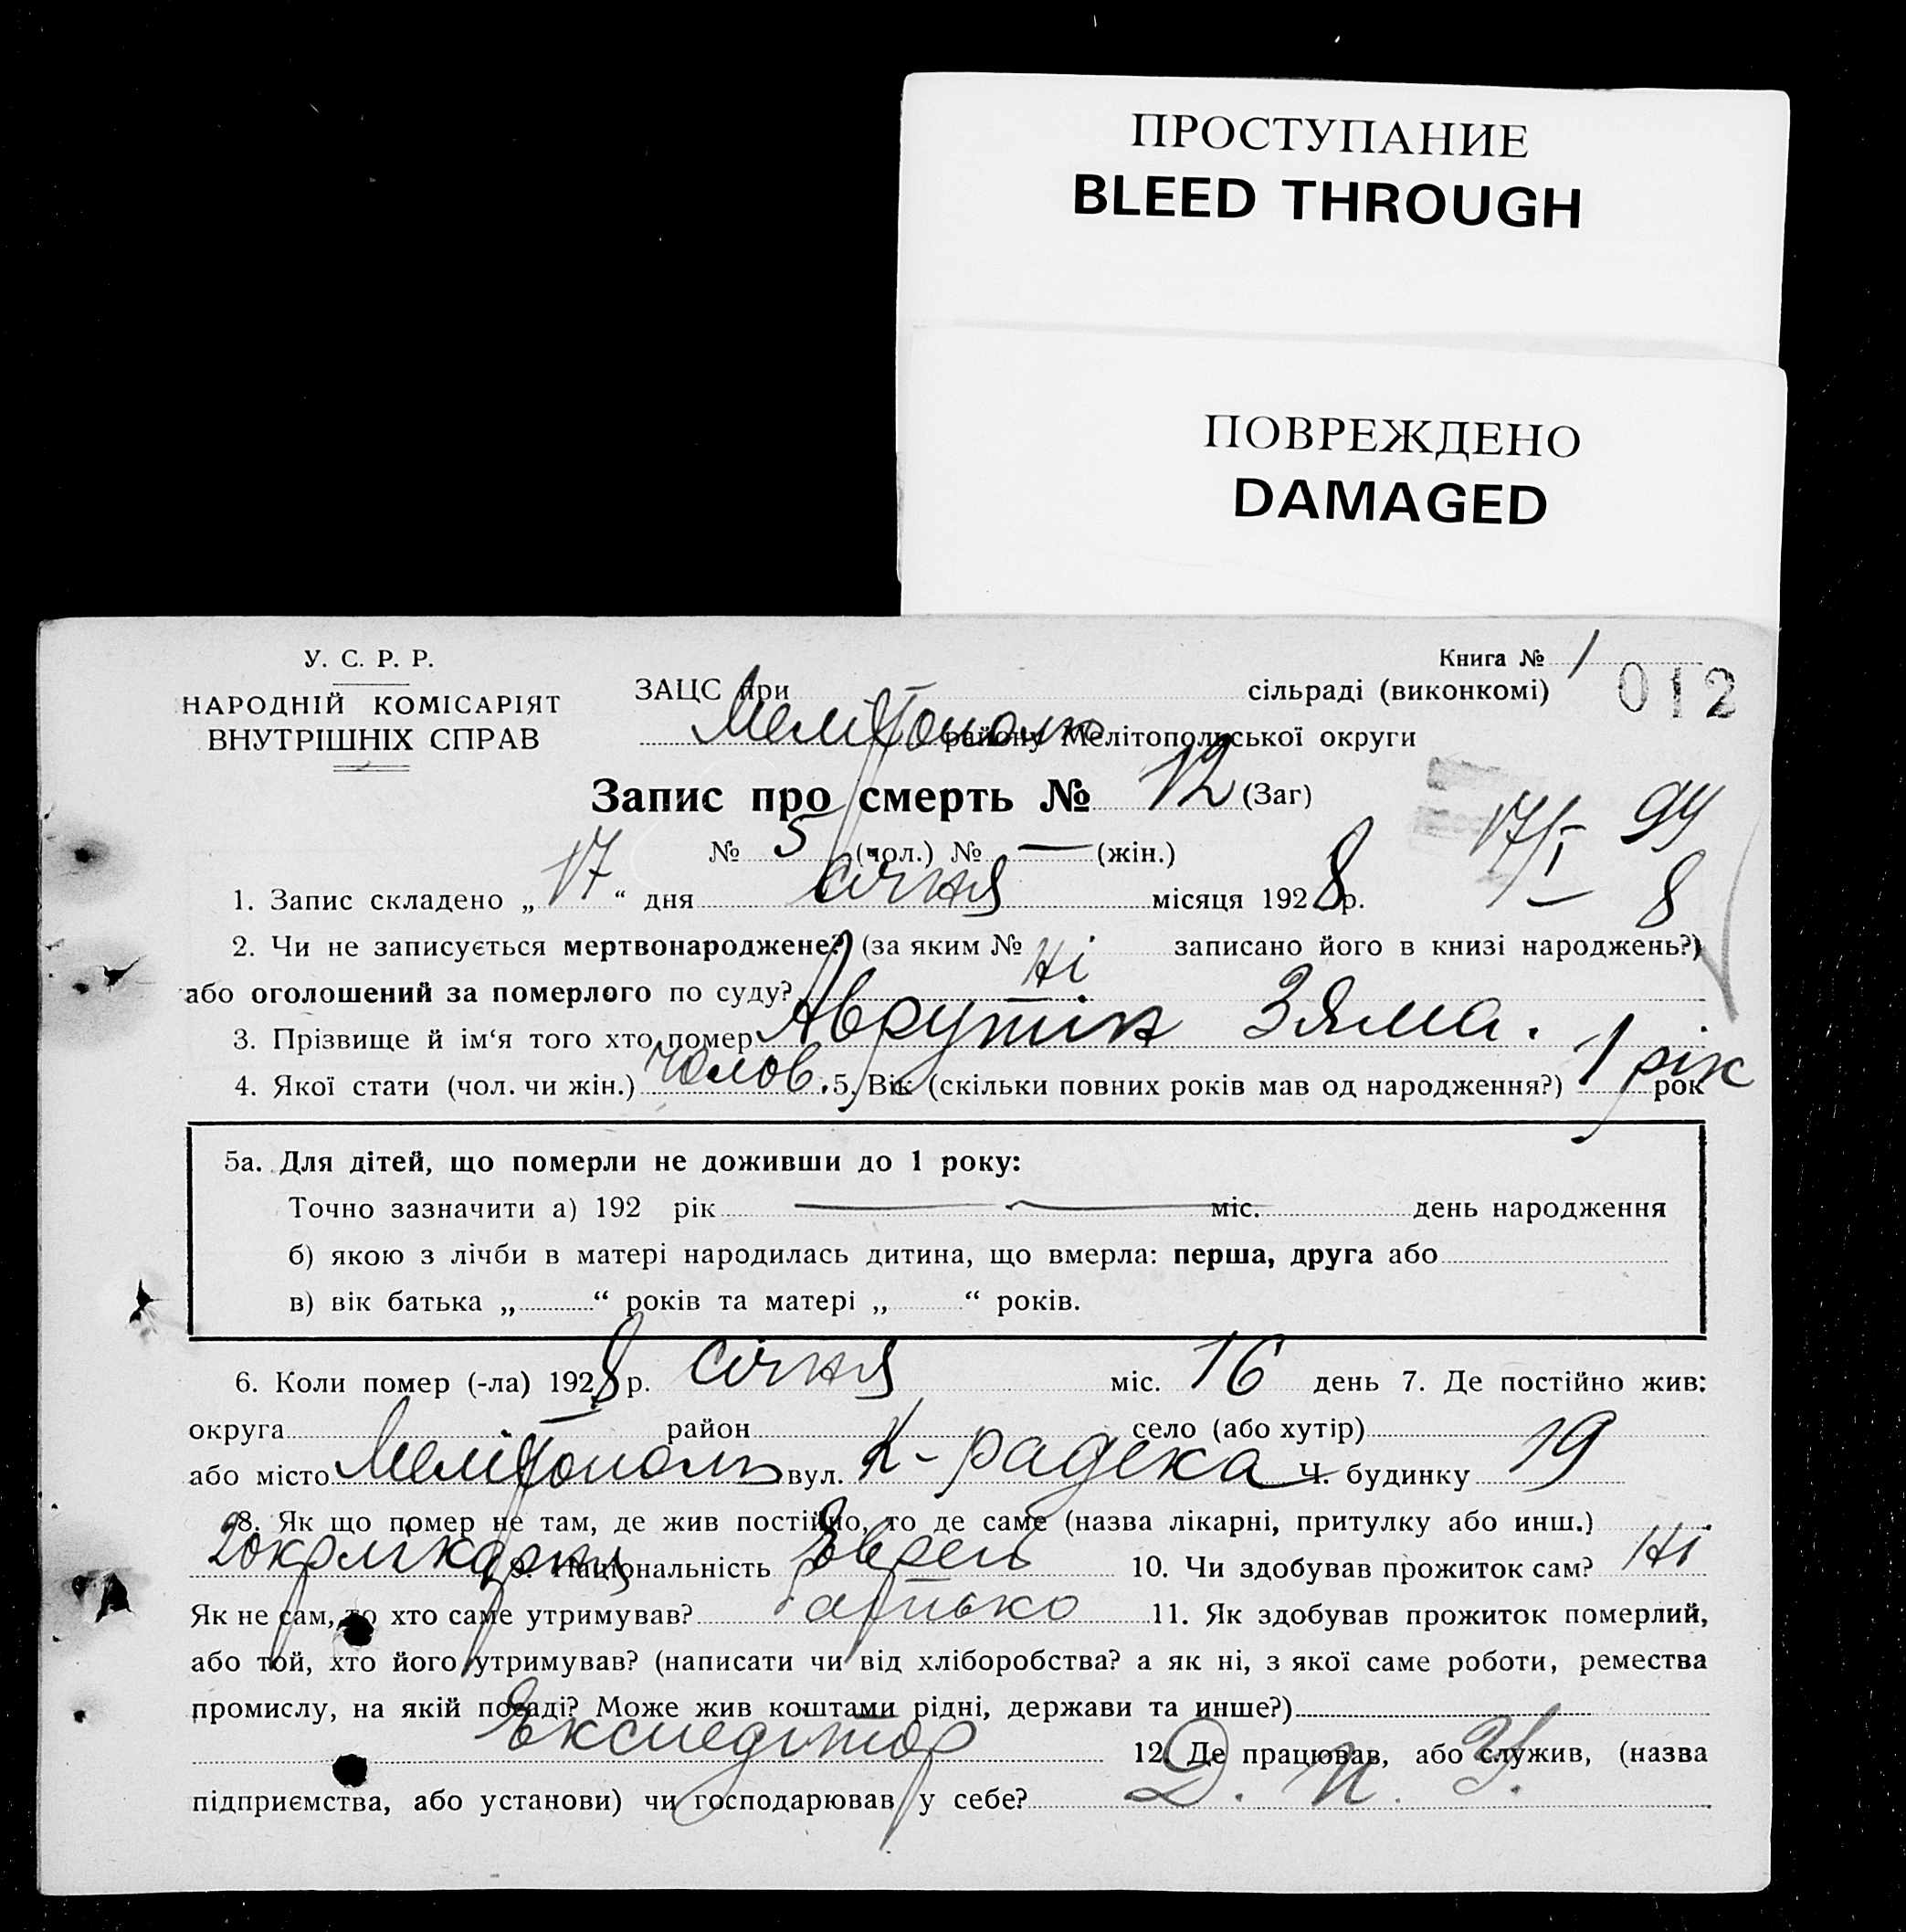 ПРОСТУПАНИЕ
BLEED THROUGH
ПОВРЕЖДЕНО
DAMAGED
У. С. Р. Р.
НАРОДНІЙ КОМІСАРІЯТ
ВНУТРІШНІХ СПРАВ
Книга № 1
012
ЗАЦС при сільраді (виконкомі)
Мелітополь району Мелітопольської округи
Запис про смерть № 12 (Заг)
№ 5 (чол.) № — (жін.)
17/I – 8
99
1. Запис складено „17“ дня січня місяця 1928 р.
2. Чи не записується мертвонароджене? (за яким № ні записано його в книзі народжень?)
або оголошений за померлого по суду? ні
3. Прізвище й ім'я того хто помер Аврутін Зяма.
4. Якої стати (чол. чи жін.) чолов. 5. Вік (скільки повних років мав од народження?) 1 рік рок
5а. Для дітей, що померли не доживши до 1 року:
Точно зазначити а) 192 рік — — міс. день народження
б) якою з лічби в матері народилась дитина, що вмерла: перша, друга або
в) вік батька „ “ років та матері „ “ років.
6. Коли помер (-ла) 1928 р. січня міс. 16 день 7. Де постійно жив:
округа район село (або хутір)
або місто Мелітополь вул. К-радека Ч. будинку 19
8. Як що помер не там, де жив постійно, то де саме (назва лікарні, притулку або инш.)
окрлікарні 9. Національність Єврей 10. Чи здобував прожиток сам? Ні
Як не сам, то хто саме утримував? батько 11. Як здобував прожиток померлий,
або той, хто його утримував? (написати чи від хліборобства? а як ні, з якої саме роботи, ремества
промислу, на якій посаді? Може жив коштами рідні, держави та инше?)
Експедітор 12. Де працював, або служив, (назва
підприємства, або установи) чи господарював у себе? Д. П. У.